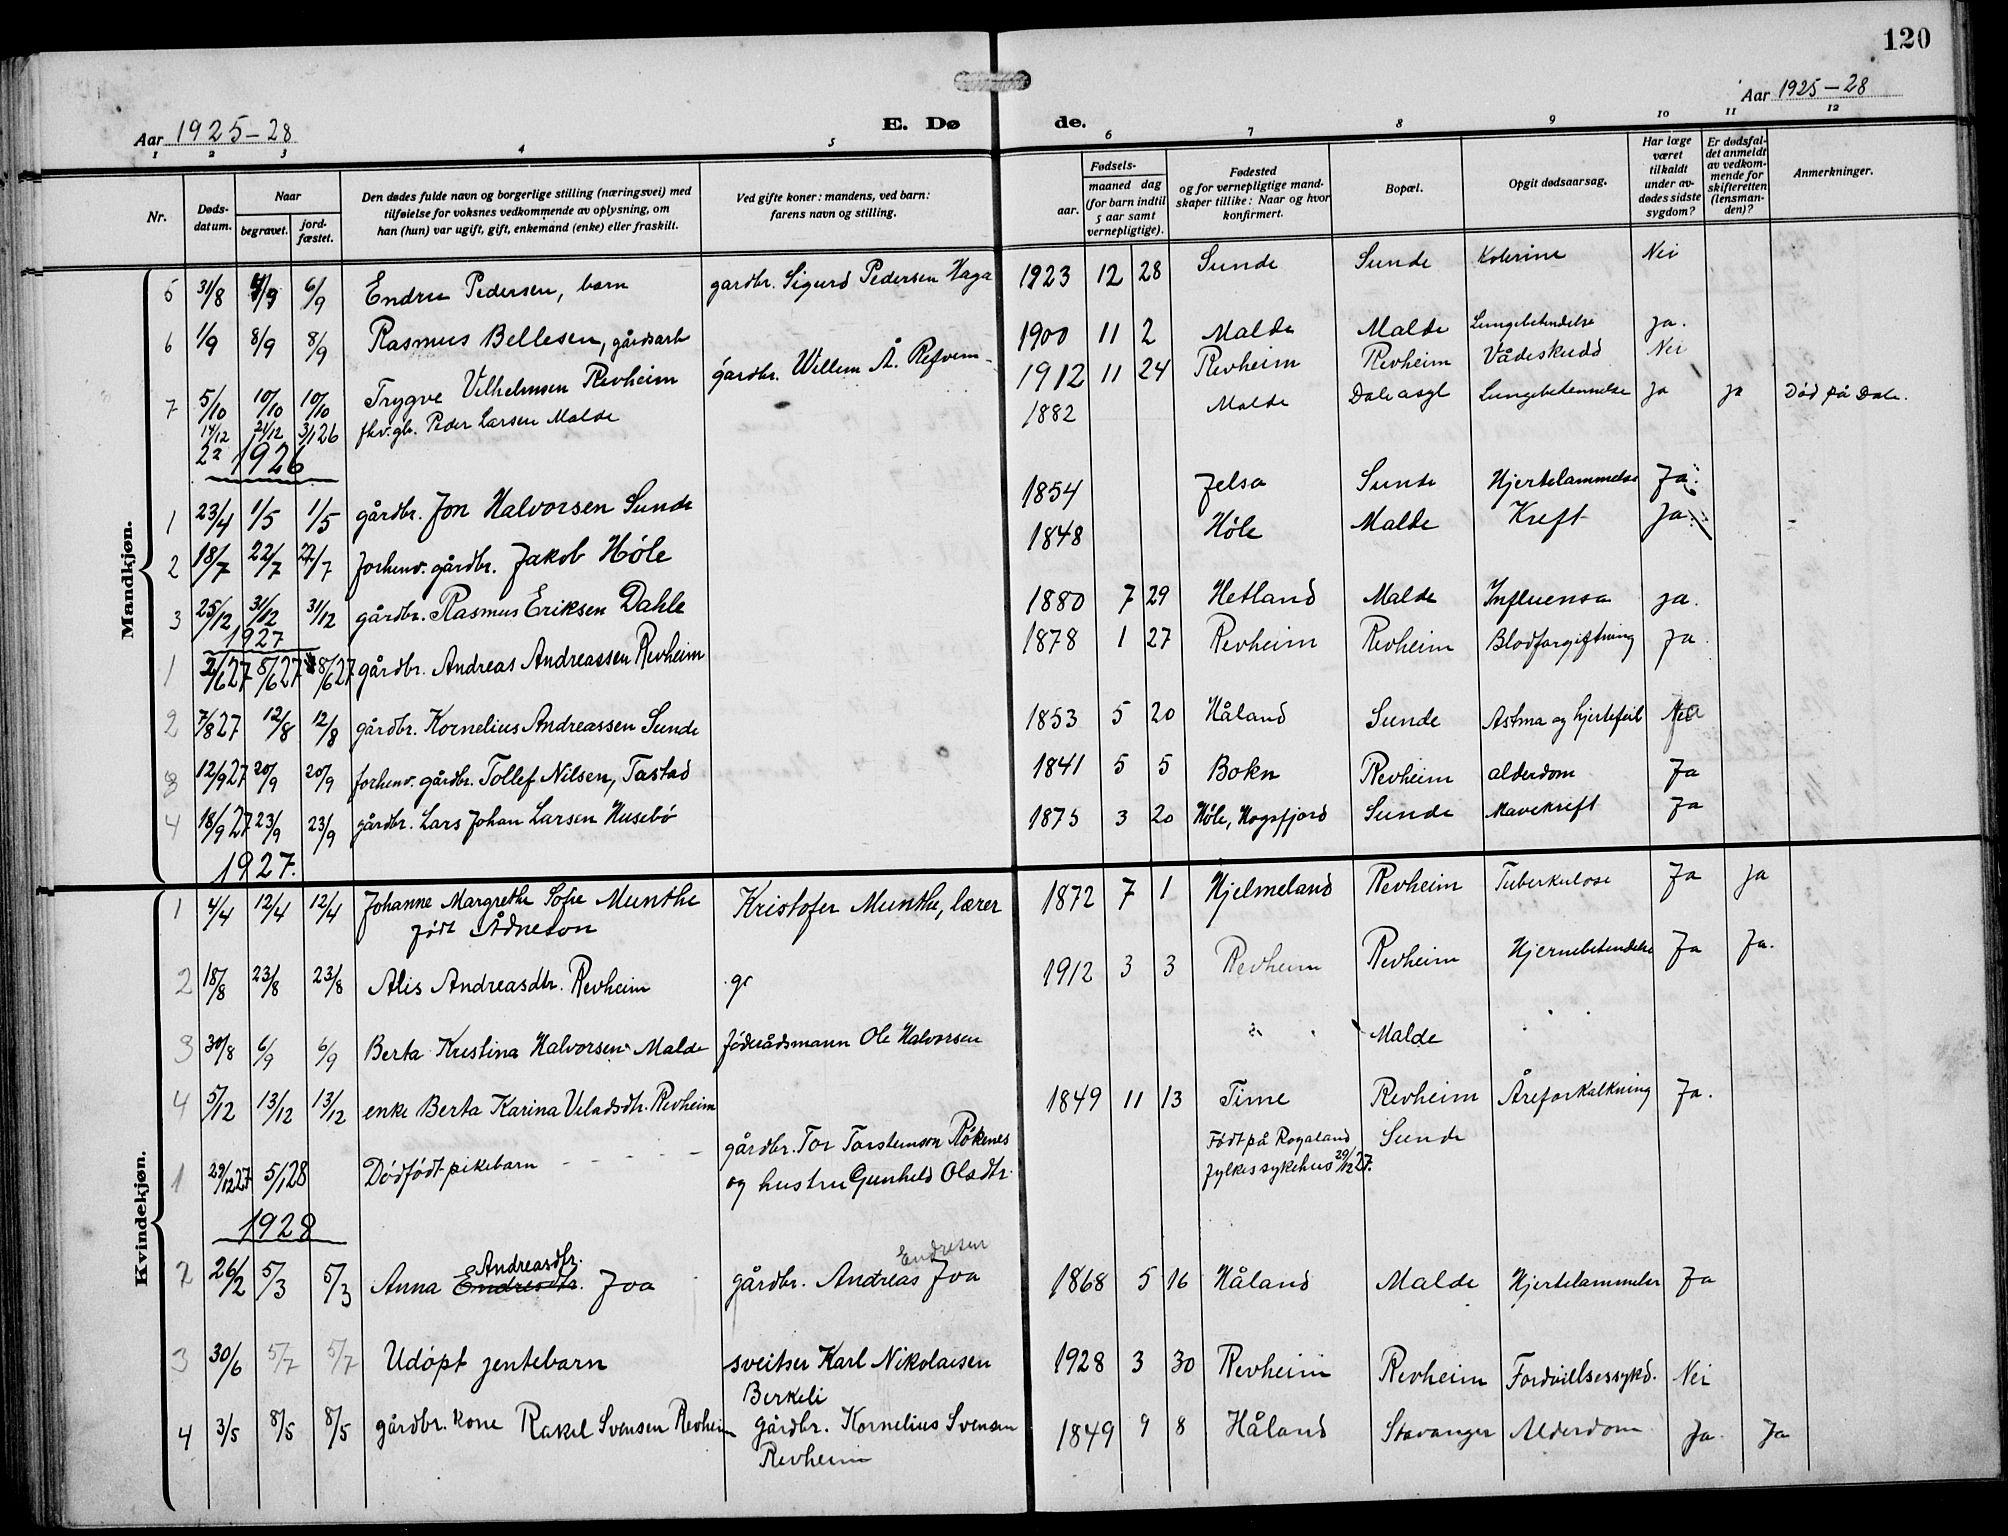 120
Aar 1925-28
E. Dø de.
Aar 1925-28
1 2 3 4 5 6 7 8 9 10 11 12
Nr.
Døds-datum.
Naar
begravet.
jord-fæstet.
Den dødes fulde navn og borgerlige stilling (næringsvei) med
tilføielse for voksnes vedkommende av oplysning, om
han (hun) var ugift, gift, enkemand (enke) eller fraskilt.
Ved gifte koner: mandens, ved barn:
farens navn og stilling.
Fødsels-
aar.
maaned dag
(for barn indtil
5 aar samt
vernepligtige).
Fødested
og for vernepligtige mand-
skaper tillike: Naar og hvor
konfirmert.
Bopæl.
Opgit dødsaarsag.
Har læge
været
tilkaldt
under av-
dødes sidste
sygdom?
Er dødsfal-
det anmeldt
av vedkom-
mende for
skifteretten
(lensman-
den)?
Anmerkninger.
Mandkjøn.
5 31/8 4/9 6/9 Endre Pedersen, barn gardbr. Sigurd Pedersen Haga 1923 12 28 Sunde Sunde Kolerine Nei
6 1/9 8/9 8/9 Rasmus Bellesen, gårdsarb 1900 11 2 Malde Malde Lungebetendelse ja.
7 5/10 10/10 10/10 Trygve Vilhelmsen Revheim gårdbr. Willem A. Refvem 1912 11 24 Revheim Revheim Vådeskudd Nei
14/12 21/12 3/1 26 fhv. gb. Peder Larsen Malde 1882 Malde Dale asyl Lungebetennelse ja ja Død på Dale.
22 1926
1 23/4 1/5 1/5 gårdbr. Jon Halvorsen Sunde 1854 Jelsa Sunde Hjertelammelse Ja.
2 18/7 22/7 22/7 forhenv. gårdbr. Jakob Høle 1848 Høle Malde Kreft Ja.
3 25/12 31/12 31/12 gårdbr. Rasmus Eriksen Dahle 1880 7 29 Hetland Malde Influensa ja.
1927
1 2/6 27 8/6 27 8/6 27 gårdbr. Andreas Andreassen Revheim 1878 1 27 Revheim Revheim Blodforgiftning Ja.
2 7/8 27 12/8 12/8 gårdbr. Kornelius Andreassen Sunde 1853 5 20 Håland Sunde Astma og hjertefeil
3 12/9 27 20/9 20/9 forhenv. gårdbr. Tollef Nilsen, Tastad 1841 5 5 Bokn Revheim alderdom Ja
4 18/9 27 23/9 23/9 gårdbr. Lars Johan Larsen Husebø 1875 3 20 Høle, Høgsfjord Sunde Mavekreft Ja
1927.
Kvindekjøn.
1 4/4 12/4 12/4 Johanne Margrethe Sofie Munthe Kristofer Munthe, lærer 1872 7 1 Hjelmeland Revheim Tuberkulose Ja ja
født Ådneson
2 18/8 23/8 23/8 Alis Andreasdtr. Revheim gr 1912 3 3 Revheim Revheim Hjernebetendelse Ja Ja.
3 30/8 6/9 6/9 Berta Kristina Halvorsen Malde føderådsmann Ole Halvorsen Malde
4 5/12 13/12 13/12 enke Berta Karina Veladsdtr. Revheim 1849 11 13 Time Revheim Åreforkalkning Ja.
1 29/12 27 5/1 28 Dødfødt pikebarn gårdbr. Tor Torstenson Røkenes Født på Rogaland Sunde
og hustru Gunhild Olsdtr. fylkessykehus 29/12 27.
1928
2 26/2 5/3 5/3 Anna Endresdtr. Andreasdtr. Joa gårdbr. Andreas Endresen Joa 1868 5 16 Håland Malde Hjertelammelse Ja
3 30/6 5/7 5/7 Udøpt jentebarn sveitser Karl Nikolaisen 1928 3 30 Revheim Revheim Fordøielsessykd. Nei
Berkeli
4 3/5 8/5 8/5 gårdbr. kone Rakel Svensen Revheim gårdbr. Kornelius Svensen 1849 9 8 Håland Stavanger Alderdom Ja. Ja
Revheim